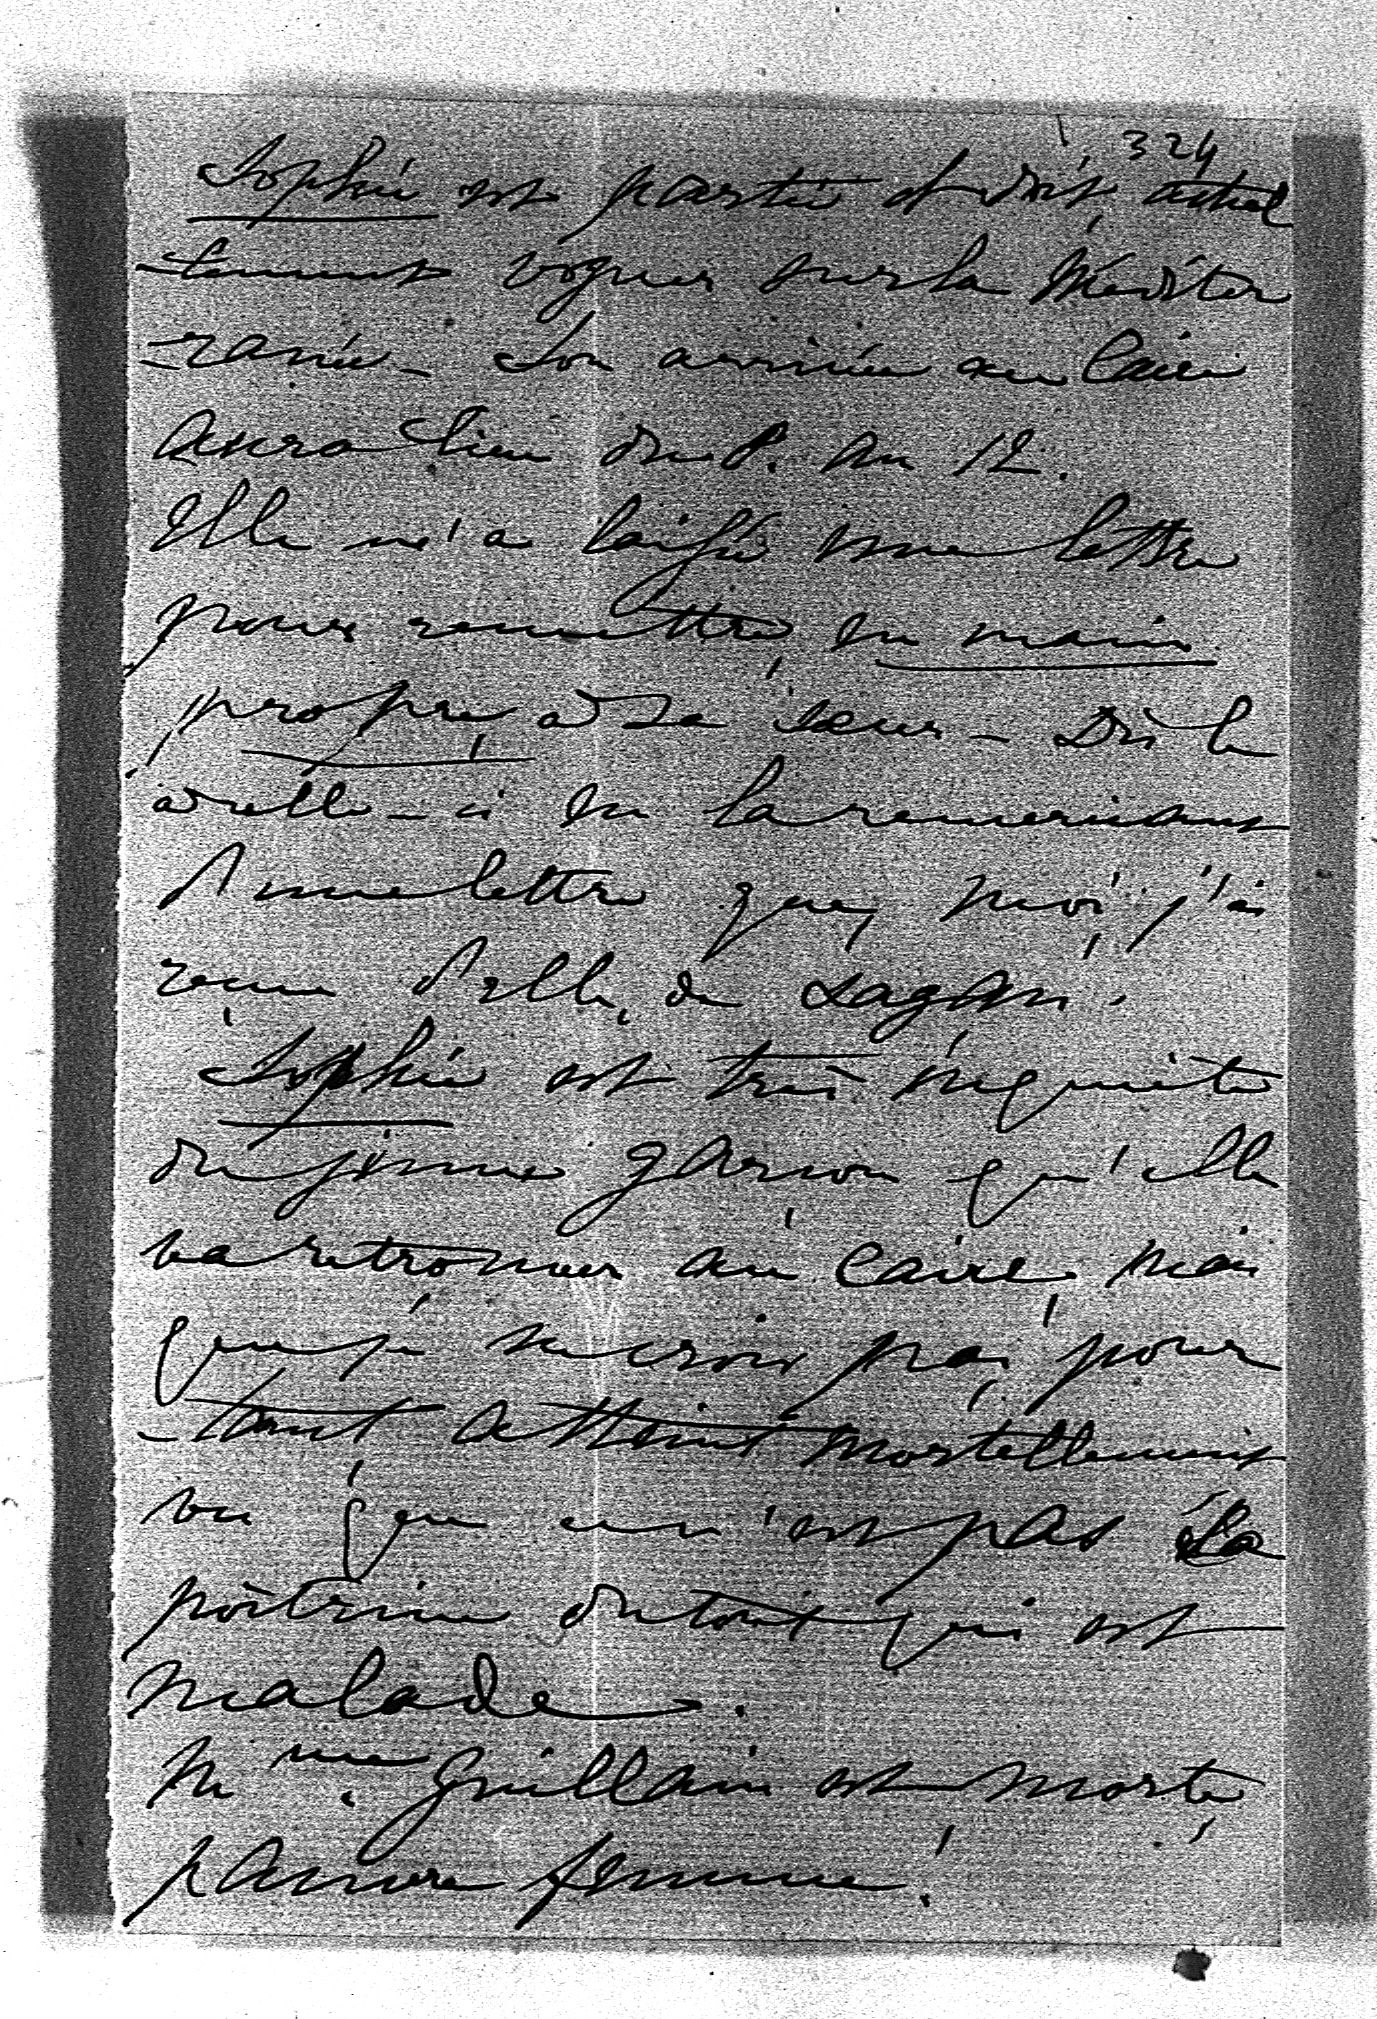 324
Sophie est partie et doit, actuel
-lement voguer sur la Méditer
-ranée - Son arrivée au Caire
aura lieu du 8. au 12.
Elle m'a laissé une lettre
pour remettre, en main
propre, à sa soeur - Dis le
à celle-ci en la remerciant
d'une lettre que, moi, j'ai
reçue d'elle, de Sagan.
Sophie est très inquiète
du jeune garçon qu'elle
va retrouver au Caire, mais
que je ne crois pas, pour
-tant atteint mortellement
vu que ce n'est pas la
poitrine du tout qui est
malade.
Mme. Guillain est morte,
pauvre femme!